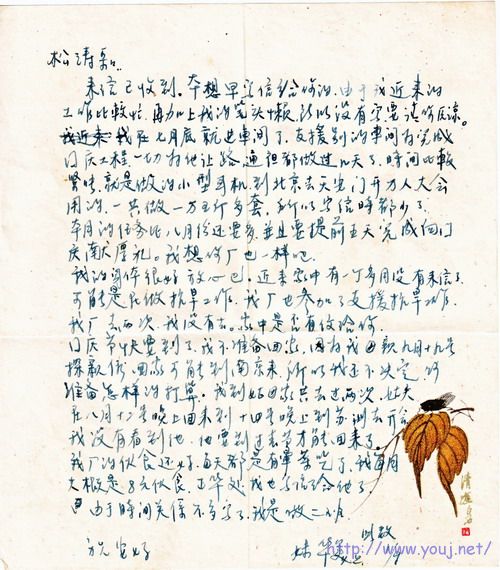 松涛弟:
来信已收到。本想早写信给你的,由于我近来的
工作比较忙,再加上我的笔头懒,所以没有写,要请你原谅。
我近来我在七月底就进车间了,支援别的车间为完成
国庆工程一切为他让路,通
时间比较
紧张,就是做的小型耳机,到北京去天安门开万人大会
用的,一共做一万五千多套,所以写信时都少了。
本月的任务比八月份还要多,并且要提前五天完成向国
庆献厚礼。我想你厂也一样吧。
我的身体很好放心巴,近来家中有一丁多月没有来信了,
可能是在做抗旱工作,我厂也参加了支援抗旱工作,
我厂去两次,我没有去。家中是否有信给你。
国庆节快要到了,我不准备回家,因为我
九月十九号
探亲假,回家可能到南京来,所以我还不决定,你
准备怎样的打算。我到
家只去过两次,姑夫
在八月十二号晚上回来到十四号晚上到苏州去开会
我没有看到他,他要到过
才能回来了。
我厂的伙食还好,每天都是有荤菜吃了,我每月
大概是8元伙食,正华处我也写信给他了。
由于时间关系不多写了,我是做二班
此致
祝安好
妹
http://www.youj.net/